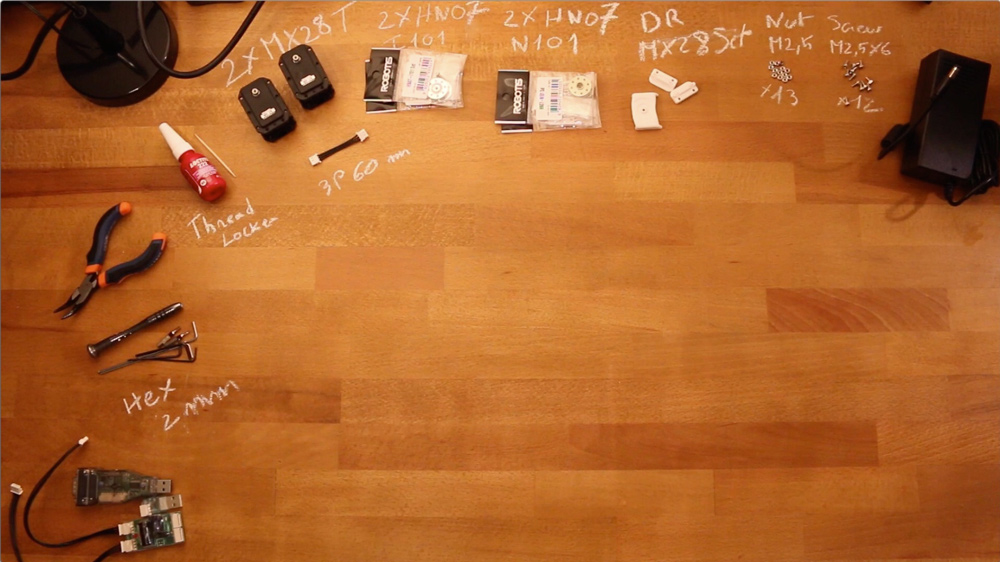 2XMX28T
2XHN07
I101
2XHN07
N101
DR
MX28Set
Nut
M2,5
X13
Screw
M2,5X6
X12
ROBOTIS
ROBOTIS
3P 60 mm
Thread
Locker
Hex
2 mm